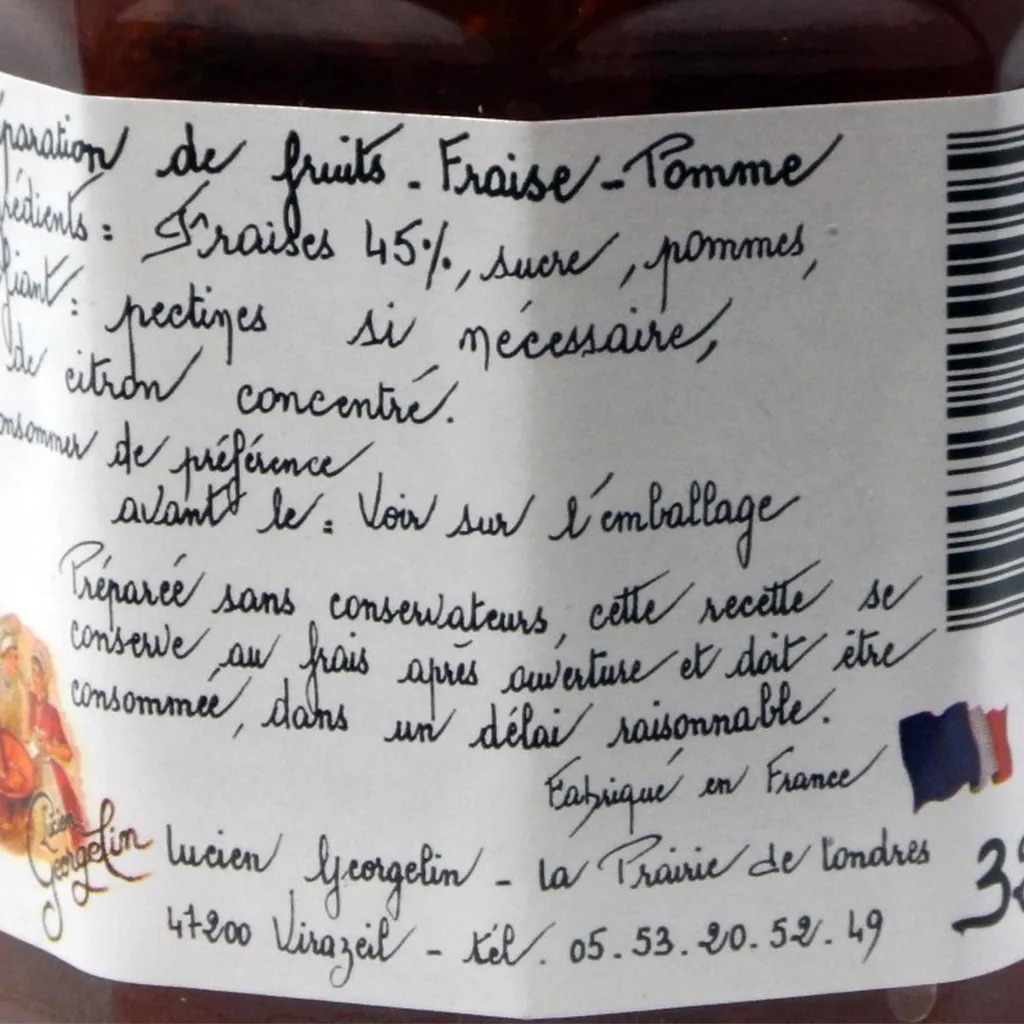 paration de fruits - Fraise - Pomme
rédients : Fraises 45%, sucre, pommes,
fiant : pectines si nécessaire,
de citron concentré.
onsommer de préférence
avant le : Voir sur l'emballage
Préparée sans conservateurs, cette recette se
conserve au frais après ouverture et doit être
consommée, dans un délai raisonnable.
Fabriqué en France
Lucien Georgelin
Lucien Georgelin - La Prairie de Londres
47200 Virazeil - tél. 05.53.20.52.49